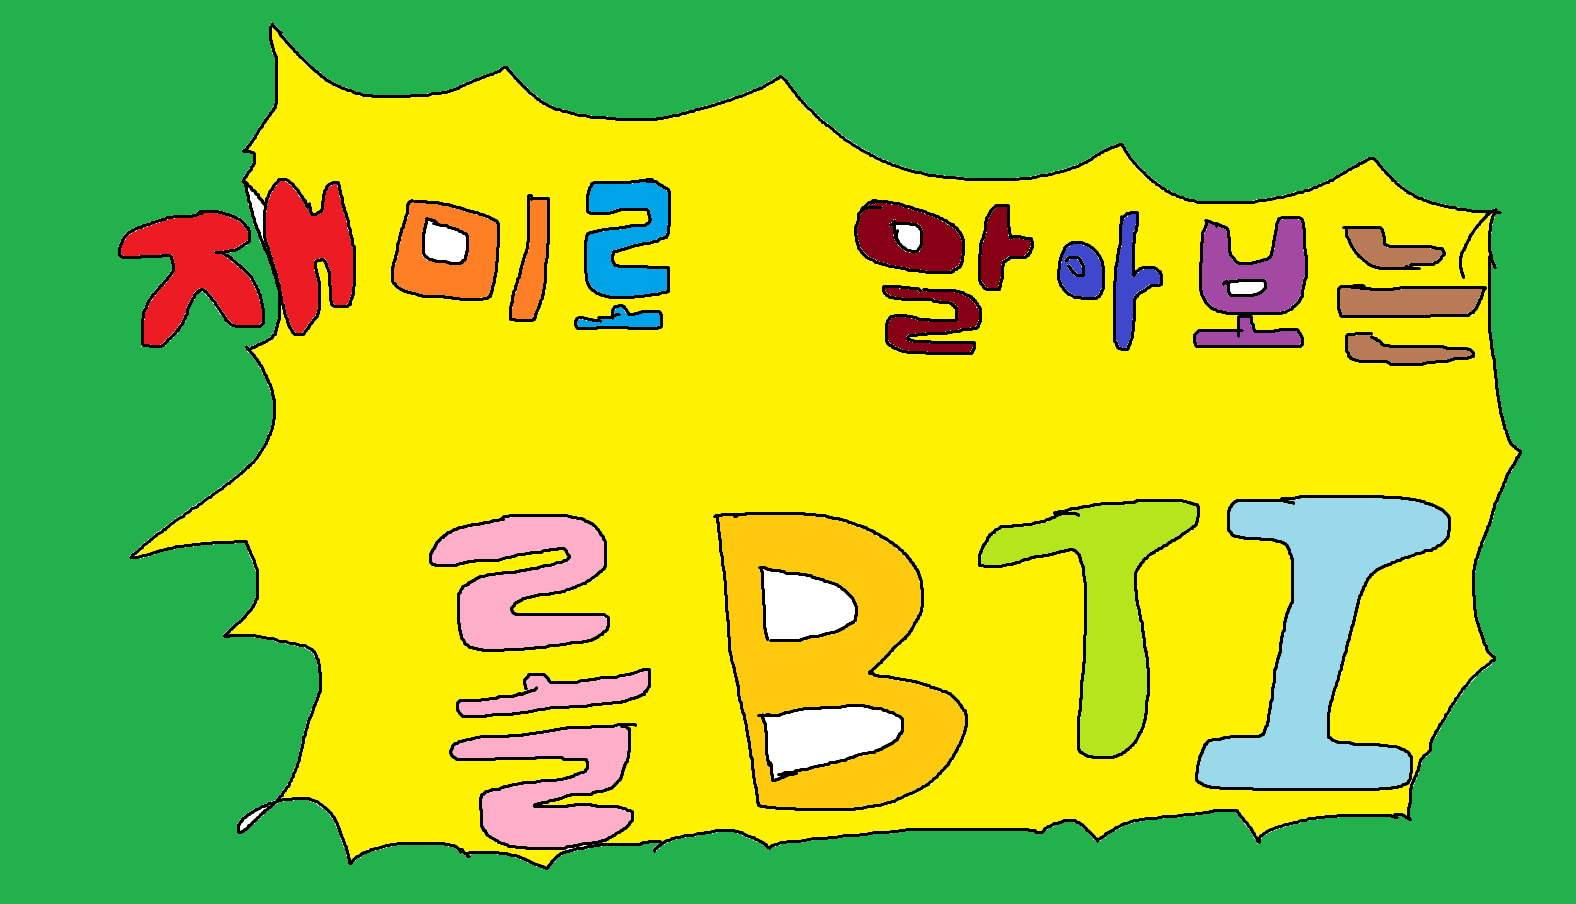 재미로 알아보는
롤BTI